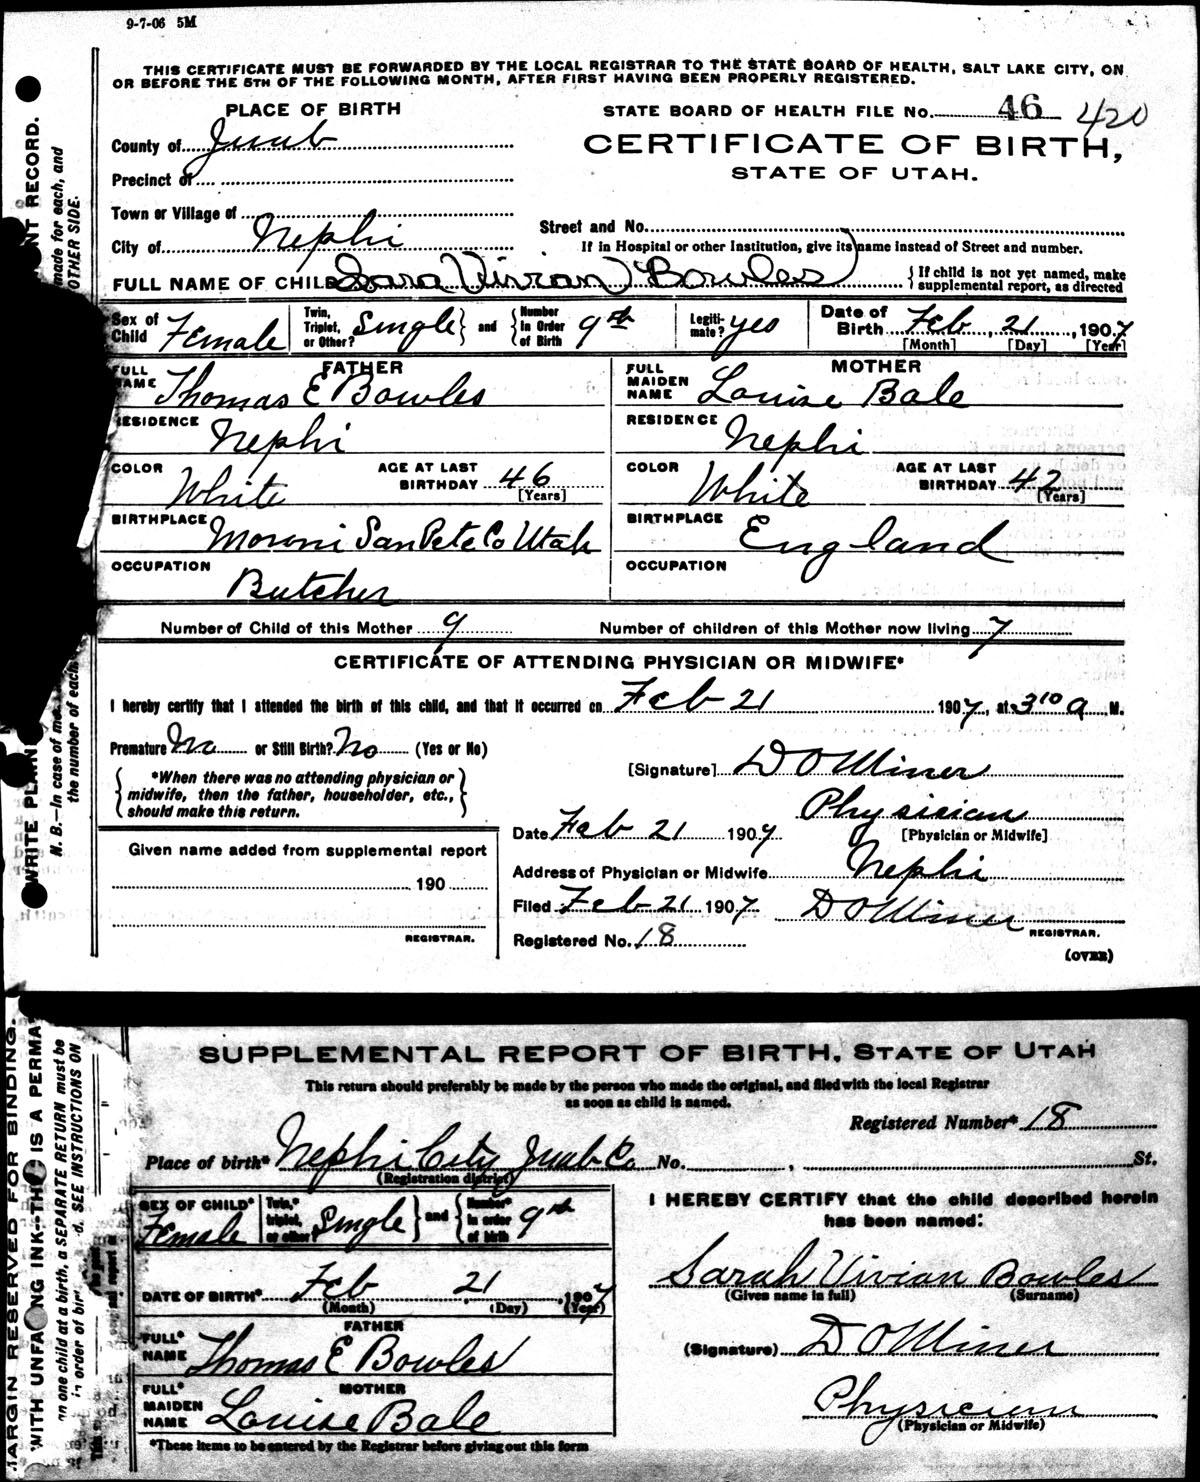 9-7-06 5M
THIS CERTIFICATE MUST BE FORWARDED BY THE LOCAL REGISTRAR TO THE STATE BOARD OF HEALTH, SALT LAKE CITY, ON
OR BEFORE THE 5TH OF THE FOLLOWING MONTH, AFTER FIRST HAVING BEEN PROPERLY REGISTERED.
PLACE OF BIRTH
STATE BOARD OF HEALTH FILE No. 46 420
County of Juab
CERTIFICATE OF BIRTH,
STATE OF UTAH.
Precinct of
Town or Village of
Street and No.
City of Nephi
If in Hospital or other Institution, give its name instead of Street and number.
FULL NAME OF CHILD Sara Vivian Bowles { If child is not yet named, make
supplemental report, as directed
Sex of Child Female
Twin, Triplet, or Other? Single } and { Number in Order of Birth 9th
Legiti- mate? yes
Date of Birth Feb, 21, 1907
[Month] [Day] [Year]
FATHER
FULL NAME Thomas E Bowles
MOTHER
FULL MAIDEN NAME Louise Bale
RESIDENCE Nephi
RESIDENCE Nephi
COLOR White AGE AT LAST BIRTHDAY 46 [Years]
COLOR White AGE AT LAST BIRTHDAY 42 [Years]
BIRTHPLACE Moroni SanPete Co Utah
BIRTHPLACE England
OCCUPATION Butcher
OCCUPATION
Number of Child of this Mother 9 Number of children of this Mother now living 7
CERTIFICATE OF ATTENDING PHYSICIAN OR MIDWIFE*
I hereby certify that I attended the birth of this child, and that it occurred on Feb 21 1907, at 3 10 a M.
Premature No or Still Birth? No (Yes or No)
{ *When there was no attending physician or
midwife, then the father, householder, etc.,
should make this return. }
[Signature] D O Miner
Physician
[Physician or Midwife]
Date Feb 21 1907
Given name added from supplemental report
190
REGISTRAR.
Address of Physician or Midwife Nephi
Filed Feb 21 1907 D O Miner
REGISTRAR.
Registered No. 18
(OVER)
SUPPLEMENTAL REPORT OF BIRTH, STATE OF UTAH
This return should preferably be made by the person who made the original, and filed with the local Registrar
as soon as child is named.
Registered Number* 18
Place of birth* Nephi City Juab Co No. , St.
(Registration district)
SEX OF CHILD* Female
Twin,* triplet, or other Single } and { Number* in order of birth 9th
DATE OF BIRTH* Feb 21, 1907
(Month) (Day) (Year)
FATHER
FULL* NAME Thomas E Bowles
MOTHER
FULL* MAIDEN NAME Louise Bale
*These items to be entered by the Registrar before giving out this form
I HEREBY CERTIFY that the child described herein
has been named:
Sarah Vivian Bowles
(Given name in full) (Surname)
(Signature) D O Miner
Physician
(Physician or Midwife)
WRITE PLAIN
NT RECORD.
N. B.—In case of mo
made for each, and
the number of each
OTHER SIDE.
MARGIN RESERVED FOR BINDING.
WITH UNFADING INK—THIS IS A PERMA
an one child at a birth, a SEPARATE RETURN must be
in order of bir d. SEE INSTRUCTIONS ON